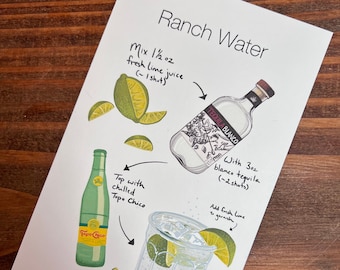 Ranch Water
Mix 1½ oz
fresh lime juice
(~1 shot)
With 3oz
blanco tequila
(~2 shots)
Top with
chilled
Topo Chico
Add fresh lime
to garnish
BLANCO
Topo Chico